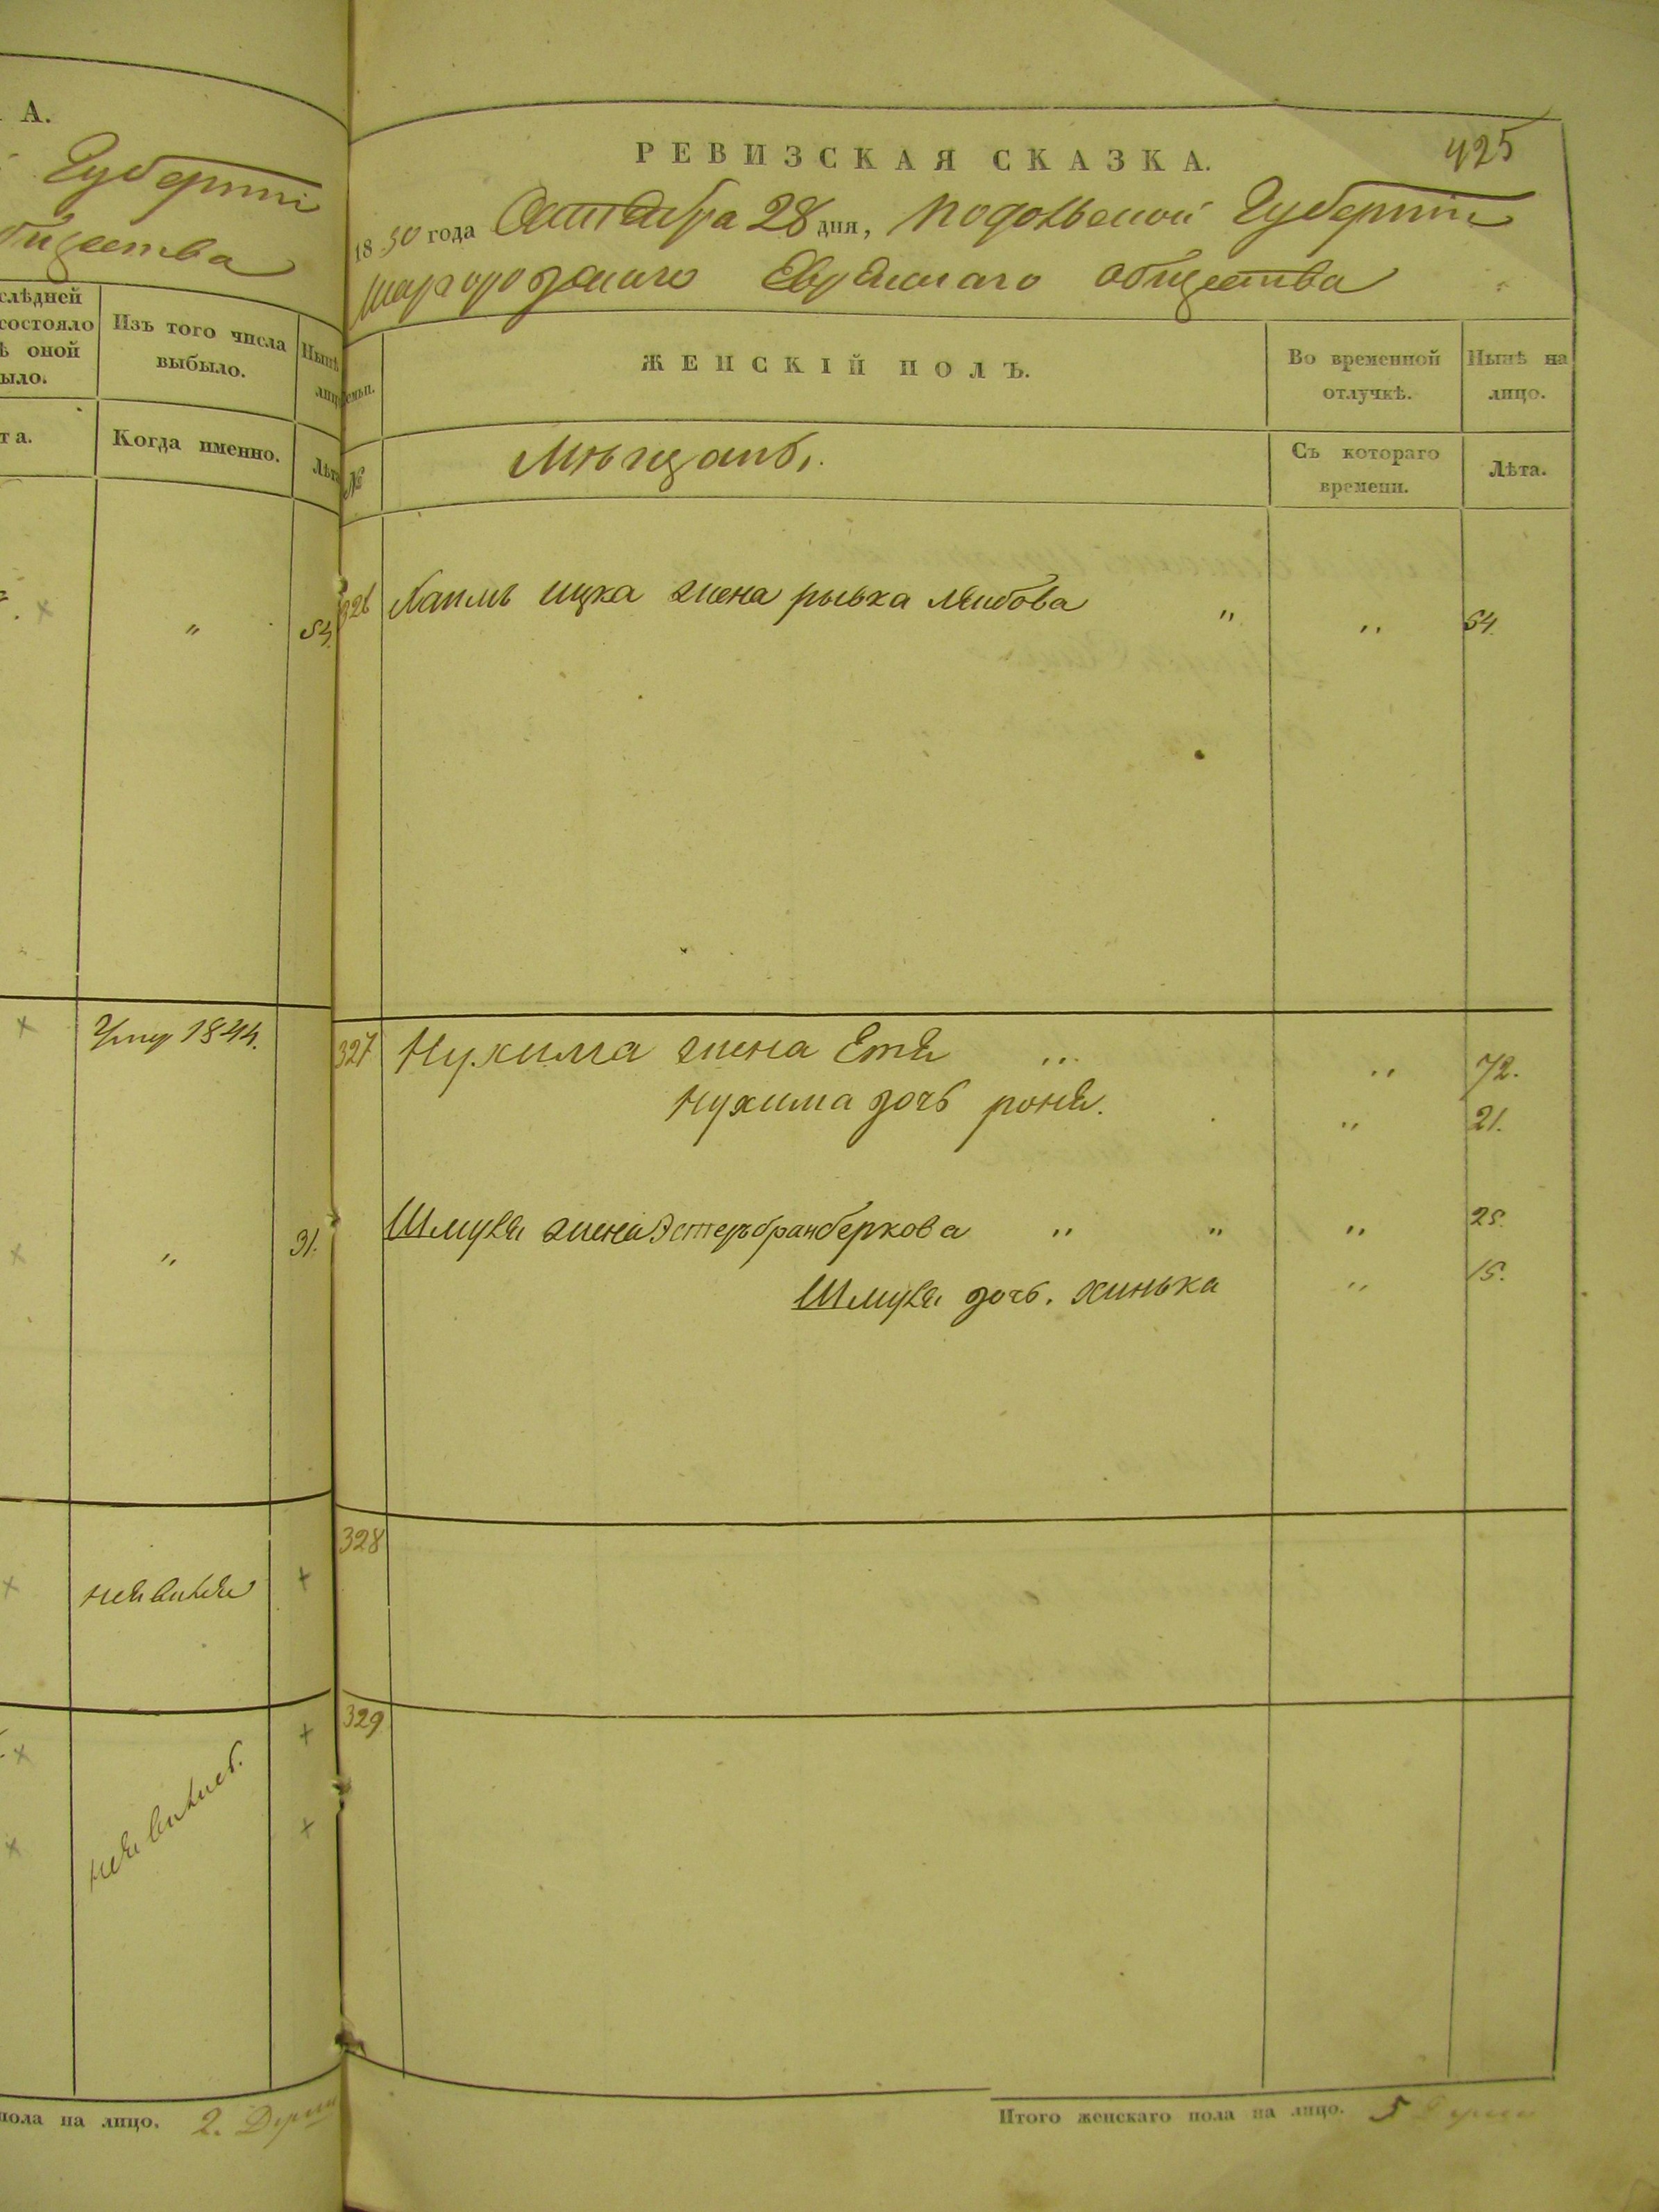 А.
Губерніи
общества
слѣдней
состояло
ѣ оной
было.
Изъ того числа
выбыло.
Нынѣ
лицо
та.
Когда именно.
Лѣта
"
54.
Умер 1844.
"
31.
неявился
неявились.
пола на лицо. 2. Души
425
РЕВИЗСКАЯ СКАЗКА.
1850 года Октября 28 дня, Подольской Губерніи
Шаргородскаго Еврейскаго общества
семьи.
ЖЕНСКІЙ ПОЛЪ.
Во временной
отлучкѣ.
Нынѣ на
лицо.
№
Мѣщанъ.
Съ котораго
времени.
Лѣта.
326 Хаимъ Ицка жена рывка Лейбова " " 54.
327 Нухима жена Етя " 72.
Нухима дочь роня. " 21.
Шмуля жена Эстеръ бран беркова " " " 25.
Шмуля дочь. хинька " 15.
328
329
Итого женскаго пола на лицо. 5 Души